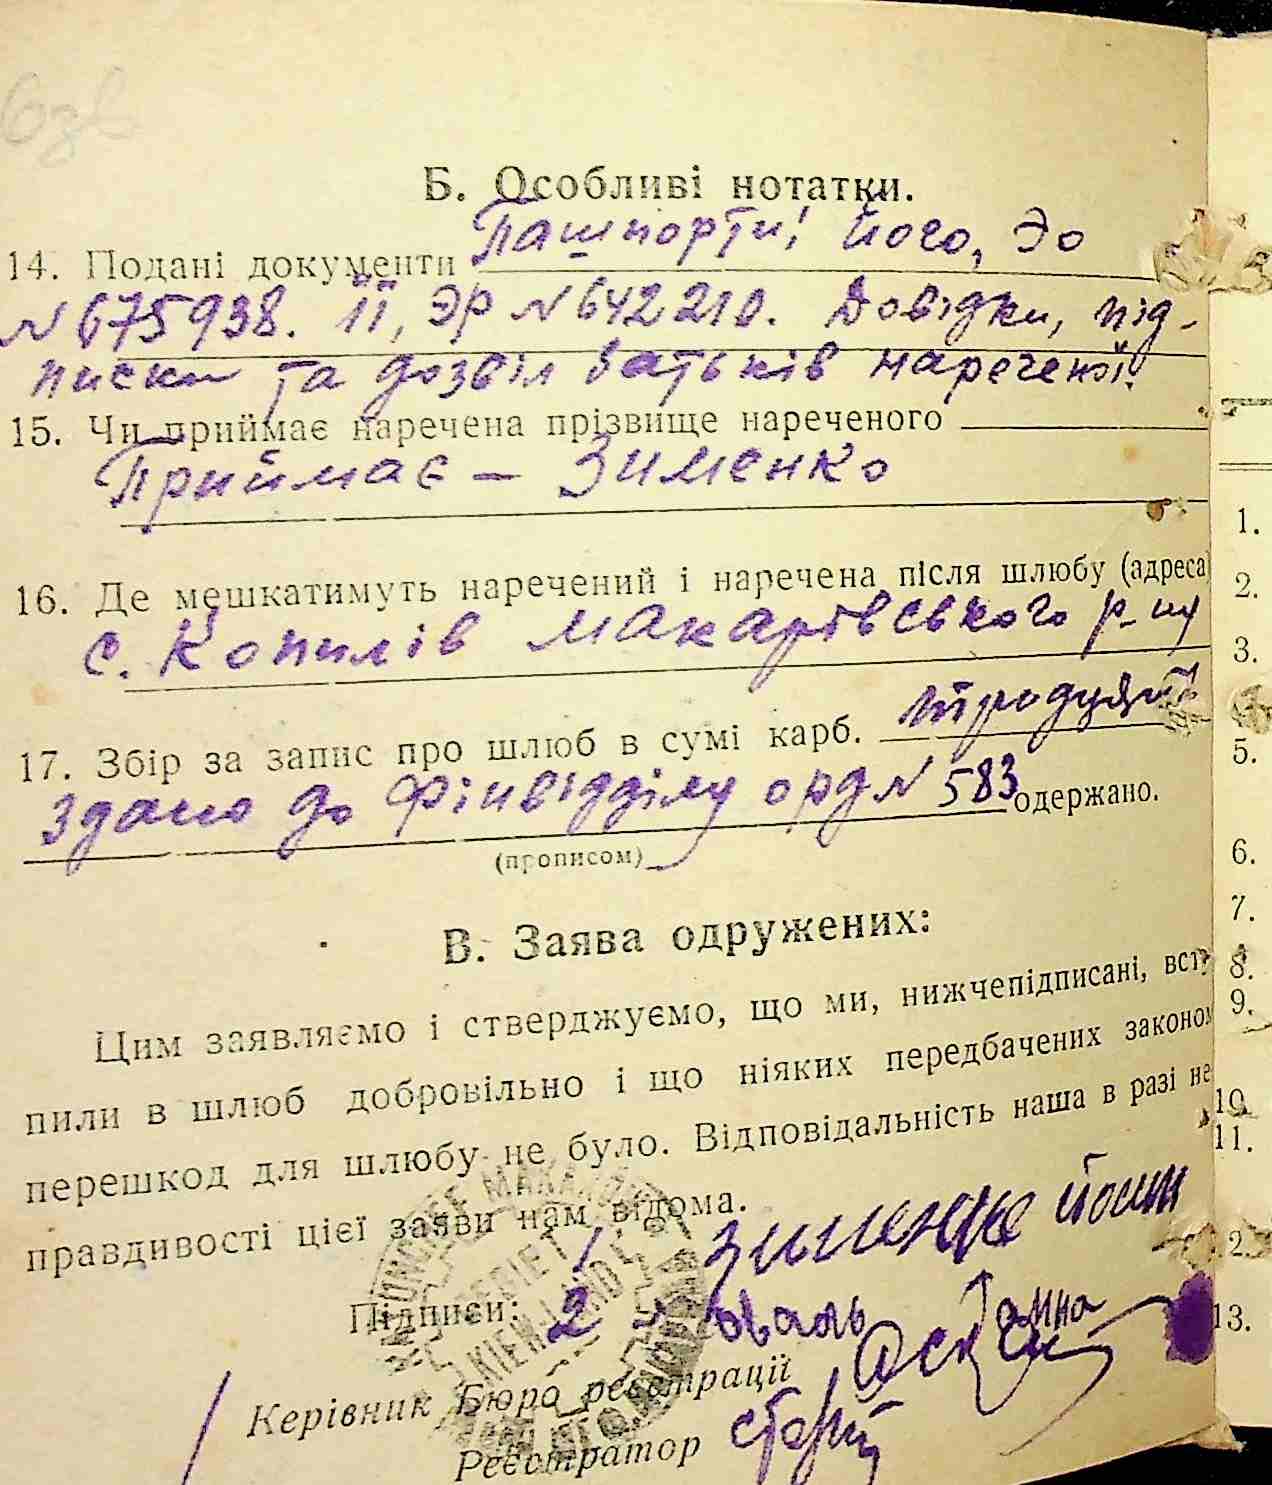 Б. Особливі нотатки.
14. Подані документи Пашпорти! Його, ЭО
№ 675938. Її, ЭР № 642210. Довідки, під-
писки та дозвіл батьків нареченої.
15. Чи приймає наречена прізвище нареченого
Приймає – Зименко
16. Де мешкатимуть наречений і наречена після шлюбу (адреса)
с. Копилів Макарівського р-ну
17. Збір за запис про шлюб в сумі карб.
Здано до Фінвідділу орд № 583 одержано.
(прописом)
В. Заява одружених:
Цим заявляємо і стверджуємо, що ми, нижчепідписані, всту
пили в шлюб добровільно і що ніяких передбачених законом
перешкод для шлюбу не було. Відповідальність наша в разі не
правдивості цієї заяви нам відома.
1. Зименко
Підписи: 2 Коваль Ганна
Керівник Бюро реєстрації
Реєстратор
1.
2.
3.
5.
6.
7.
8.
9.
10.
11.
2.
13.